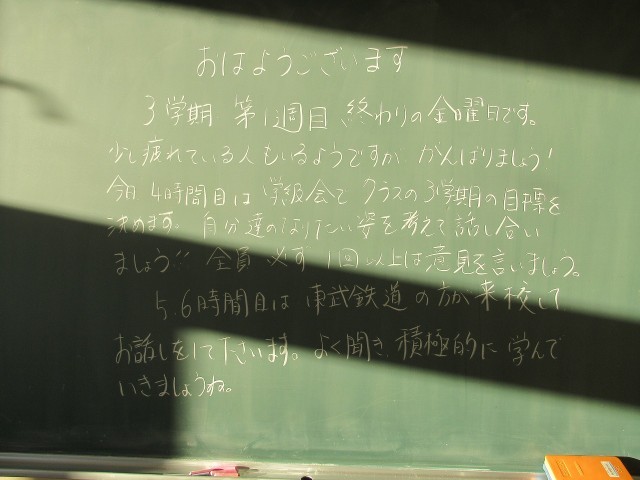 おはようございます
3学期 第1週目 終わりの金曜日です。
少し疲れている人もいるようですが がんばりましょう!
今日 4時間目は 学級会で クラスの3学期の目標を
決めます。自分達のなりたい姿を考えて話し合い
ましょう!! 全員 必ず 1回以上は意見を言いましょう。
5.6時間目は 東武鉄道の方が来校して
お話しをして下さいます。よく聞き、積極的に学んで
いきましょうね。